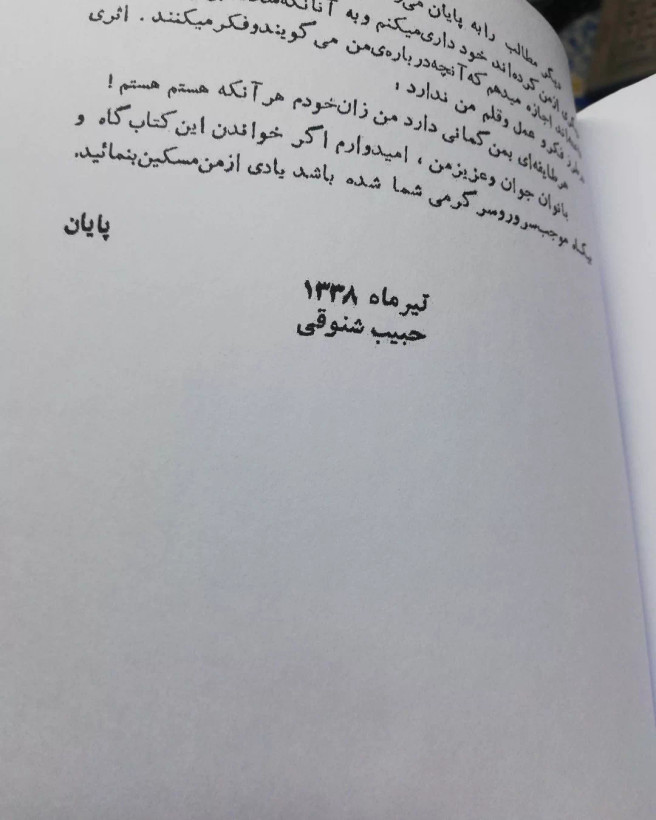 دیگر مطالب را به پایان
از من کرده‌اند خود داری میکنم و به آنانکه
اجازه میدهم که آنچه درباره‌ی من می گویند و فکر میکنند . اثری
فکر و عمل و قلم من ندارد :
هر طایفه‌ای بمن گمانی دارد من زان خودم هر آنکه هستم هستم !
بانوان جوان و عزیز من ، امیدوارم اگر خواندن این کتاب گاه و
بیگاه موجب سرور و سر گرمی شما شده باشد یادی از من مسکین بنمائید.
پایان
تیر ماه ۱۳۳۸
حبیب شنوقی